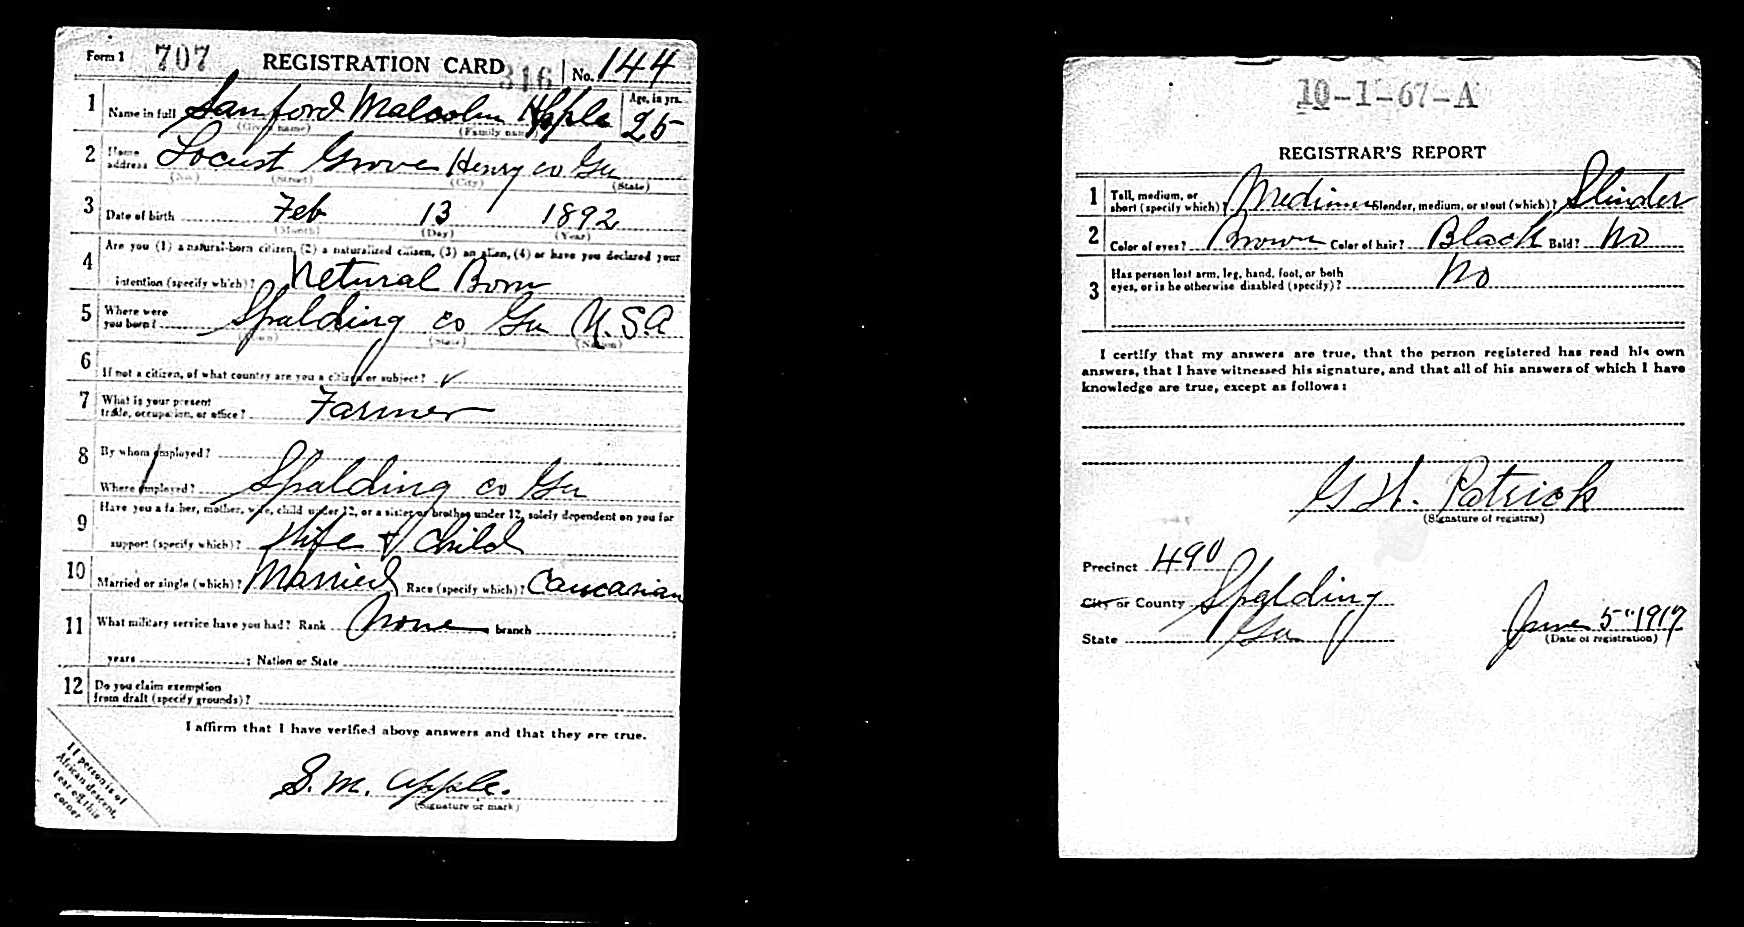 Form 1 707 REGISTRATION CARD 316 No. 144
1 Name in full Sanford Malcolm Apple Age, in yrs. 25
(Given name) (Family name)
2 Home address Locust Grove Henry co Ga
(No.) (Street) (City) (State)
3 Date of birth Feb 13 1892
(Month) (Day) (Year)
Are you (1) a natural-born citizen, (2) a naturalized citizen, (3) an alien, (4) or have you declared your
4 intention (specify which)? Netural Born
5 Where were you born? Spalding co Ga U.S.A
(Town) (State) (Nation)
6 If not a citizen, of what country are you a citizen or subject? ✓
7 What is your present trade, occupation, or office? Farmer
8 By whom employed?
Where employed? Spalding co Ga
9 Have you a father, mother, wife, child under 12, or a sister or brother under 12, solely dependent on you for
support (specify which)? Wife & Child
10 Married or single (which)? Married Race (specify which)? Caucasian
11 What military service have you had? Rank None branch ;
years ; Nation or State
12 Do you claim exemption from draft (specify grounds)?
I affirm that I have verified above answers and that they are true.
S. M. Apple.
(Signature or mark)
If person is of
African descent,
tear off this
corner
10-1-67-A
REGISTRAR'S REPORT
1 Tall, medium, or short (specify which)? Medium Slender, medium, or stout (which)? Slinder
2 Color of eyes? Brown Color of hair? Black Bald? No
3 Has person lost arm, leg, hand, foot, or both eyes, or is he otherwise disabled (specify)? No
I certify that my answers are true, that the person registered has read his own
answers, that I have witnessed his signature, and that all of his answers of which I have
knowledge are true, except as follows:
G H. Patrick
(Signature of registrar)
Precinct 490
City or County Spalding
State Ga June 5" 1917
(Date of registration)